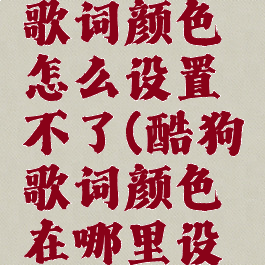 歌词颜色
怎么设置
不了(酷狗
歌词颜色
在哪里设